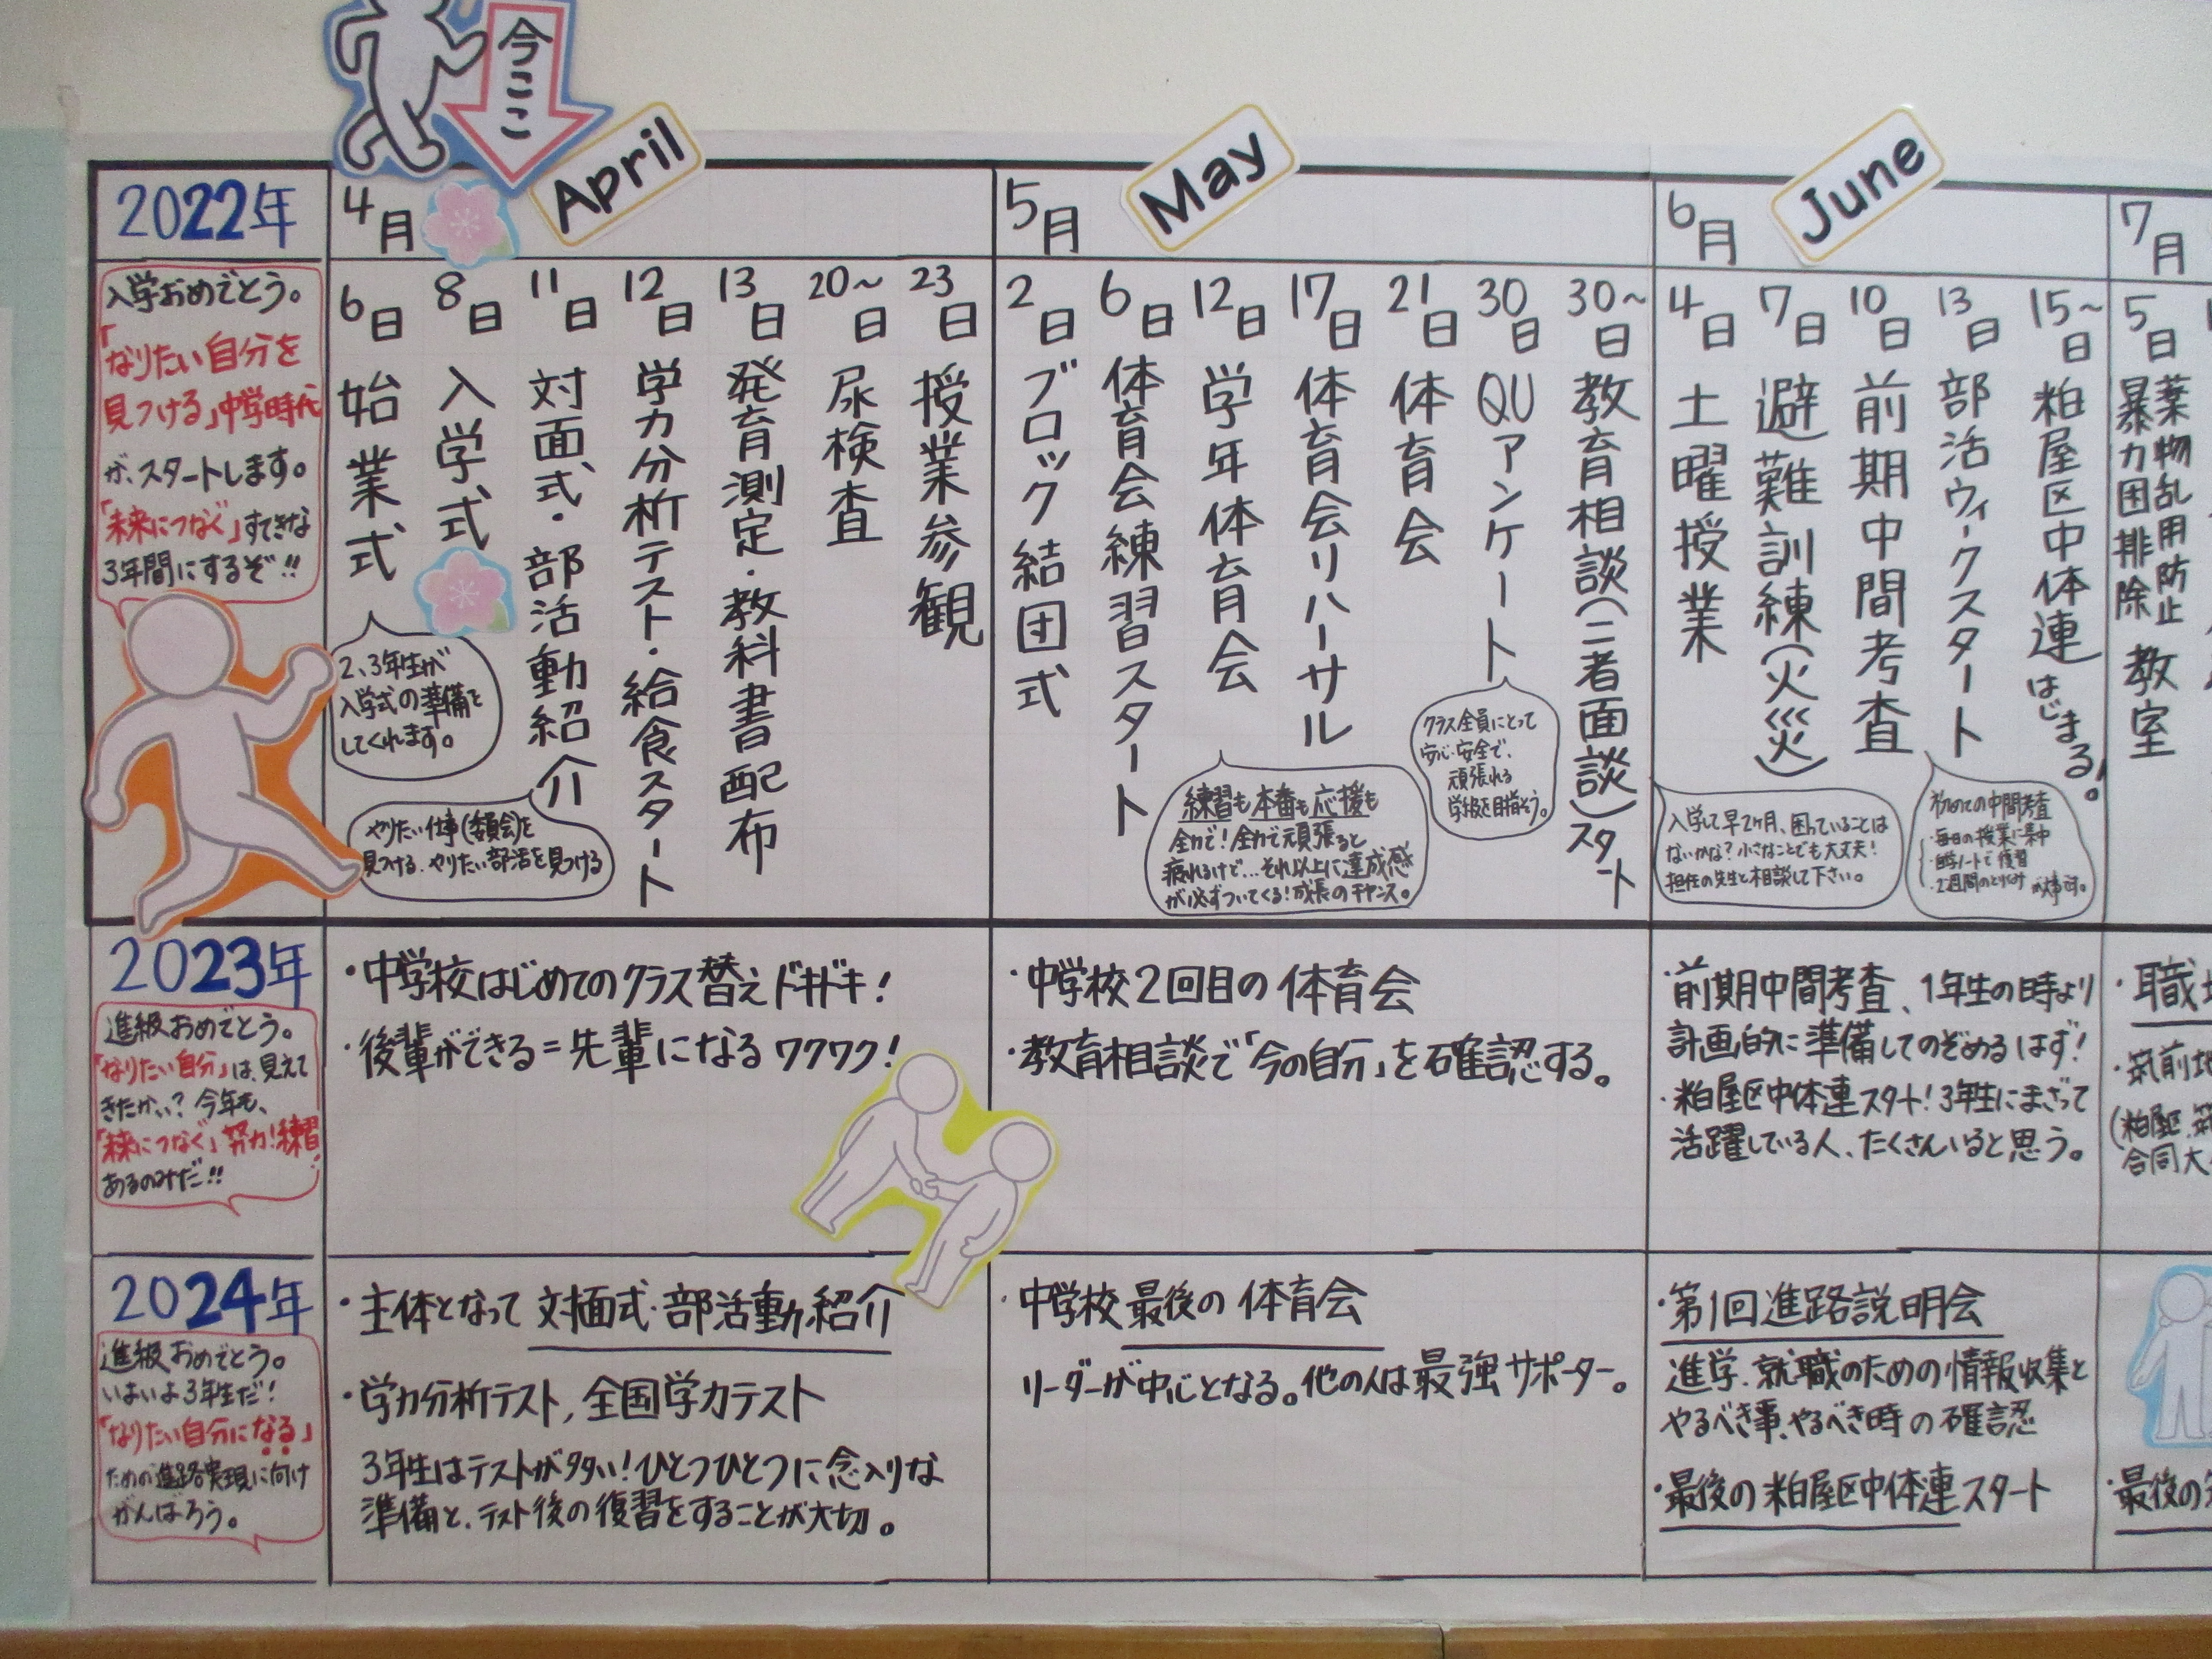 今ここ
April
May
June
2022年
4月
5月
6月
7月
入学おめでとう。
「なりたい自分を
見つける」中学時代
が、スタートします。
「未来につなぐ」すてきな
3年間にするぞ!!
6日 始業式
8日 入学式
11日 対面式・部活動紹介
12日 学力分析テスト・給食スタート
13日 発育測定・教科書配布
20~日 尿検査
23日 授業参観
2、3年生が
入学式の準備を
してくれます。
やりたい仕事(委員会)を
見つける、やりたい部活を見つける
2日 ブロック結団式
6日 体育会練習スタート
12日 学年体育会
17日 体育会リハーサル
21日 体育会
30日 QUアンケート
30~日 教育相談(二者面談)スタート
練習も本番も応援も
全力で!全力で頑張ると
疲れるけど…それ以上に達成感
が必ずついてくる!成長のチャンス。
クラス全員にとって
安心・安全で、
頑張れる
学級を目指そう。
4日 土曜授業
7日 避難訓練(火災)
10日 前期中間考査
13日 部活ウィークスタート
15~日 粕屋区中体連はじまる!
入学して早2ヶ月、困っていることは
ないかな?小さなことでも大丈夫!
担任の先生と相談して下さい。
初めての中間考査
・毎日の授業に集中
・自学ノートで復習
・2週間のとりくみ が大事です。
5日 薬物乱用防止
暴力団排除 教室
2023年
進級おめでとう。
「なりたい自分」は、見えて
きたかい?今年も、
「未来につなぐ」努力!練習!
あるのみだ!!
・中学校はじめてのクラス替えドキドキ!
・後輩ができる=先輩になるワクワク!
・中学校2回目の体育会
・教育相談で「今の自分」を確認する。
・前期中間考査、1年生の時より
計画的に準備してのぞめるはず!
・粕屋区中体連スタート!3年生にまざって
活躍している人、たくさんいると思う。
・職
・筑前地
(粕屋区、筑
合同大
2024年
進級おめでとう。
いよいよ3年生だ!
「なりたい自分になる」
ための進路実現に向け
がんばろう。
・主体となって対面式・部活動紹介
・学力分析テスト,全国学力テスト
3年生はテストが多い!ひとつひとつに念入りな
準備と、テスト後の復習をすることが大切。
・中学校最後の体育会
リーダーが中心となる。他の人は最強サポーター。
・第1回進路説明会
進学、就職のための情報収集と
やるべき事、やるべき時の確認
・最後の粕屋区中体連スタート
・最後の